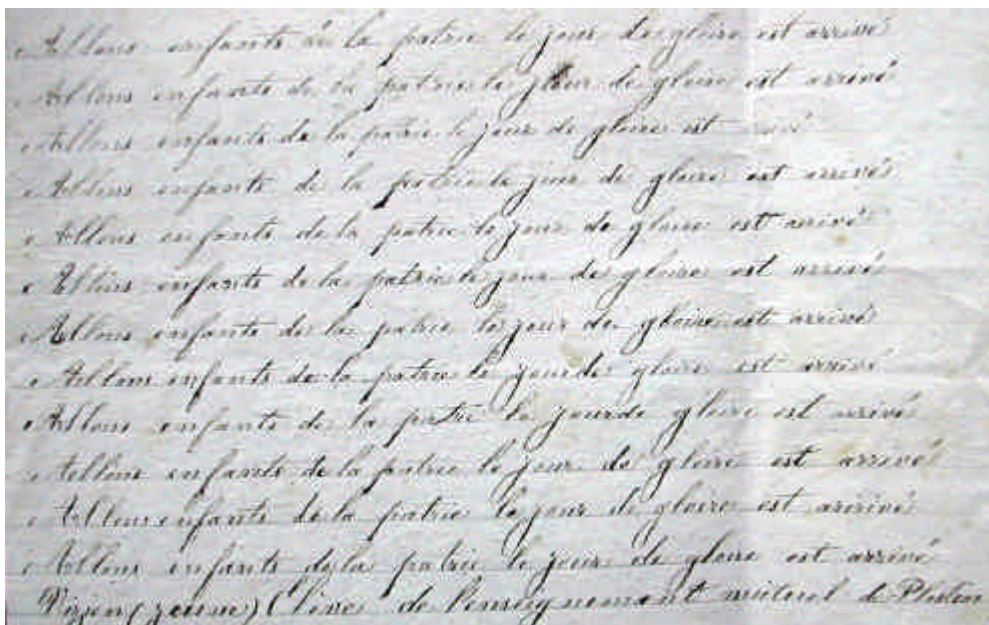 Allons enfants de la patrie le jour de gloire est arrivé
Allons enfants de la patrie le jour de gloire est arrivé
Allons enfants de la patrie le jour de gloire est
Allons enfants de la patrie le jour de gloire est arrivé
Allons enfants de la patrie le jour de gloire est arrivé
Allons enfants de la patrie le jour de gloire est arrivé
Allons enfants de la patrie le jour de gloire est arrivé
Allons enfants de la patrie le jour de gloire est arrivé
Allons enfants de la patrie le jour de gloire est arrivé
Allons enfants de la patrie le jour de gloire est arrivé
Allons enfants de la patrie le jour de gloire est arrivé
Allons enfants de la patrie le jour de gloire est arrivé
(jeune) de l'enseignement mutuel de